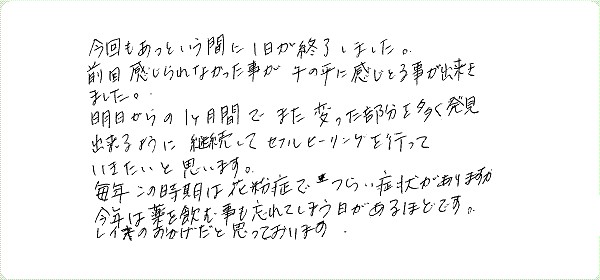 今回もあっという間に1日が終了しました。
前回感じられなかった事が手の平に感じとる事が出来き
ました。
明日からの1ヶ月間でまた変った部分を多く発見
出来るように継続してセルフヒーリングを行って
いきたいと思います。
毎年この時期は花粉症でつらい症状がありますが
今年は薬を飲む事も忘れてしまう日があるほどです。
レイキのおかげだと思っております.